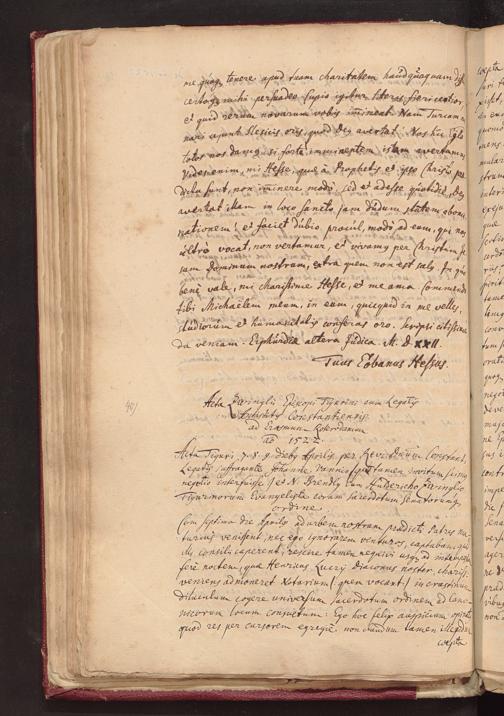 me quoq; tenere apud tuam charitatem haudquaquam dif
certoq; mihi persuadeo. Cupio igitur literas fieri certior,
et quid rerum novarum vobis immineat. Nam Turcam
ajunt Slesiis quod Deus avertat. Nos hic
totos nos damus, si forte imminentem istam avertamus
Vides enim, mi Hesse, quae a Prophetis et ipso Christo prae
dicta sunt, non imminere modo, sed et adesse quotidie, Deus
avertat illam in loco sancto jam dudum statem abomi
nationem! et faciet dubio procul, modo ad eum, qui nos
ultro vocat, non vertamur, et vivamus per Christum Je
sum Dominum nostrum, extra quem non est salus. In quo
bene vale, mi charissime Hesse, et me ama. Commendo
tibi Michaëlem meum, in eum, quicquid in me velles,
studiorum et humanitatis conferas oro. Scripsi citissime
da veniam. Erphurdiae altera Judica. M. D. XXII.
Tuus Eobanus Hessus.
Acta Zwinglii Episcopi Tigurini cum Legatis
Antistitis Constantiensis
ad Erasmum
ao 1522.
Acta Tiguri 7. 8. 9. dieb9 Aprilis per Reverendissimi Constant.
Legatos, Suffraganeo Johanne Vannio (qui tamen invitum se isti
negotio interfuisse) et N. Brendly cum Huldericho Zwinglio
Tigurinorum Evangelista coram Sacerdotum Senatorumq;
ordine.
Cum septimo die Aprilis ad urbem nostram praedicti Patres ma
turius venissent, nec ego ignorarem venturos, captabam, quid
consilii caperent, rescire tamen nequivi usq; ad intempestam
fere noctem, qua Henricus Lucij Diaconus noster chariss.
veniens admoneret Notarium (quem vocant) in crastinum
diluculum cogere universum sacerdotum ordinem ad Cano
nicorum locum consuetum. Ego hoc felix auspicium
quod res per cursorem egregie, non claudum tamen
coepta